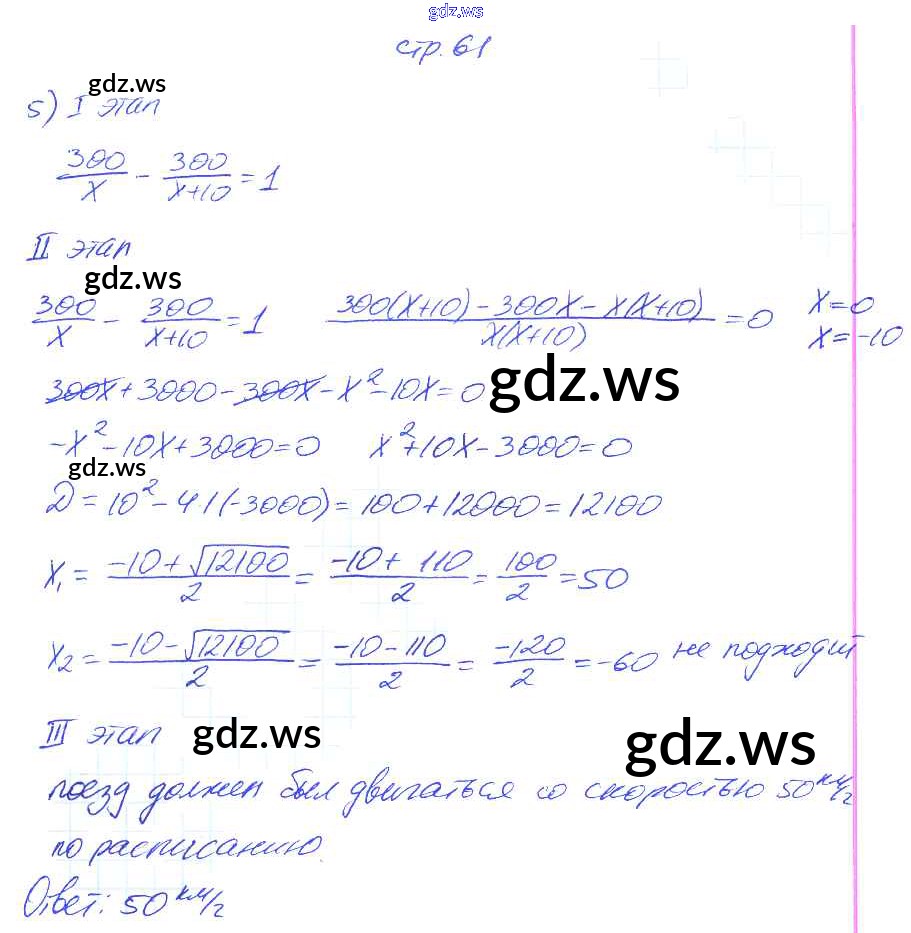 gdz.ws
стр. 61
gdz.ws
5) I этап
300/x - 300/(x+10) = 1
II этап
gdz.ws
300/x - 300/(x+10) = 1    (300(x+10) - 300x - x(x+10))/(x(x+10)) = 0    x=0
x=-10
300x + 3000 - 300x - x² - 10x = 0 gdz.ws
-x² - 10x + 3000 = 0    x² + 10x - 3000 = 0
gdz.ws
D = 10² - 4·1(-3000) = 100 + 12000 = 12100
x₁ = (-10 + √12100)/2 = (-10 + 110)/2 = 100/2 = 50
x₂ = (-10 - √12100)/2 = (-10 - 110)/2 = -120/2 = -60 не подходит
III этап gdz.ws gdz.ws
поезд должен был двигаться со скоростью 50 км/ч
по расписанию.
Ответ: 50 км/ч